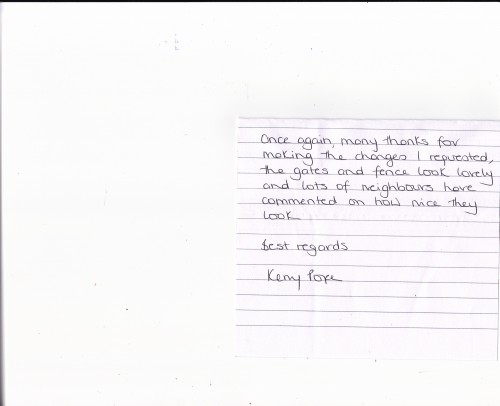 Once again, many thanks for
making the changes I requested,
the gates and fence look lovely
and lots of neighbours have
commented on how nice they
look
Best regards